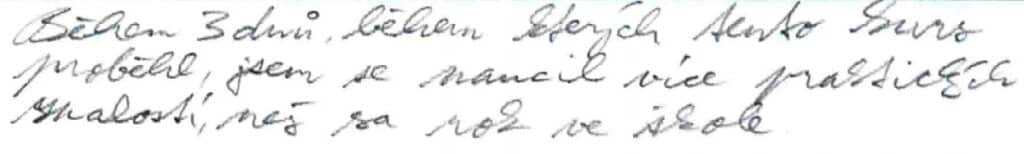 Během 3 dnů, během kterých tento kurz
proběhl, jsem se naučil více praktických
znalostí, než za rok ve škole